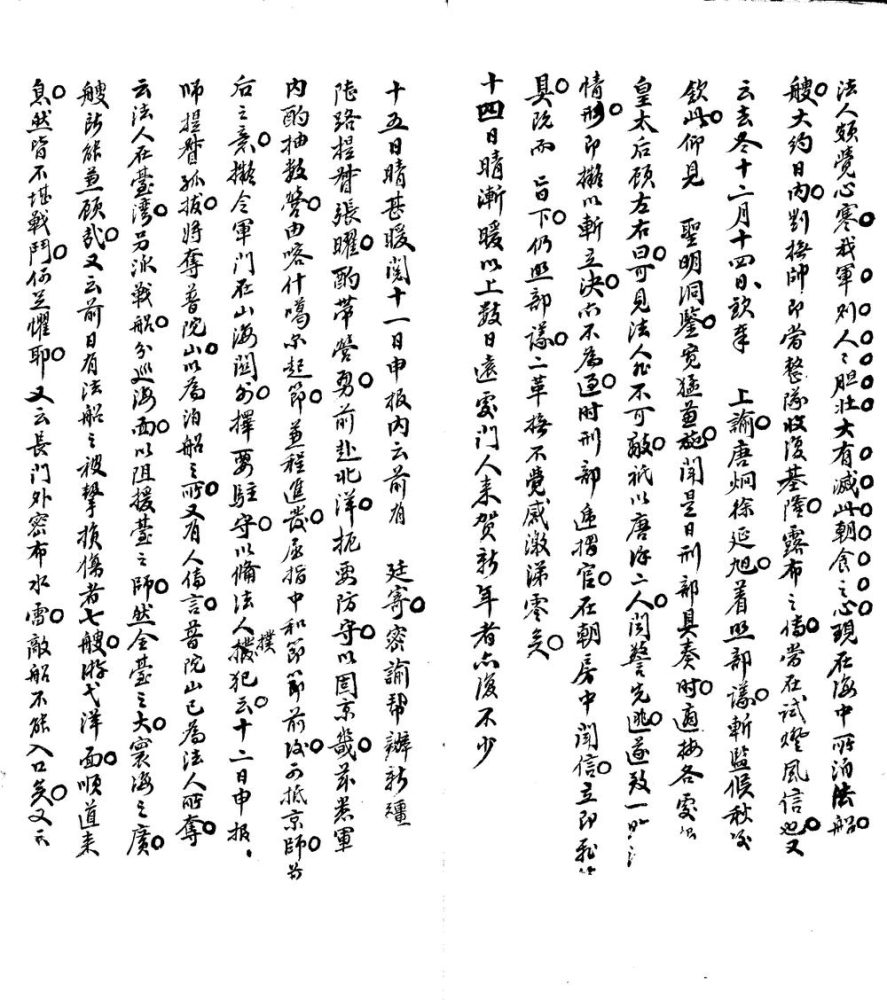 法人頗覺心寒我軍則人々胆壯大有滅此朝食之心現在海中所泊法船
艘大約日內劉撫帥即當整隊收復基隆露布之傳當在試燈風信也又
云去冬十二月十四日欽奉 上諭唐炯徐延旭着照部議斬監候秋後
欽此仰見 聖明洞鑒寬猛並施聞是日刑部具奏時適接各處
皇太后顧左右曰可見法人非不可敵祇以唐徐二人聞警先逃遂致一
情形即擬以斬立決亦不為過時刑部遞摺官在朝房中聞信立即
具既而 旨下仍照部議二草撫不覺感激涕零矣
十四日晴漸暖以上數日遠處門人來賀新年者亦復不少
十五日晴甚暖閱十一日申报內云前有 廷寄密諭帮辦新疆
陸路提督張曜酌帶營勇前赴北洋扼要防守以固京畿茲悉軍
內酌抽數營由喀什噶尔起節兼程進發屈指中和節節前後可抵京師
后之意擬令軍門在山海関外擇要駐守以俻法人撲犯云十二日申报
師提督孤拔將奪普陀山以為泊船之所又有人傳言普陀山已為法人所奪
云法人在臺湾另派戰船分巡海面以阻援臺之師然全臺之大寰海之廣
艘所能兼顧哉又云前日有法船之被擊損傷者七艘游弋洋面順道来
息然皆不堪戰鬥何足懼耶又云長門外密布水雷敵船不能入口矣又云